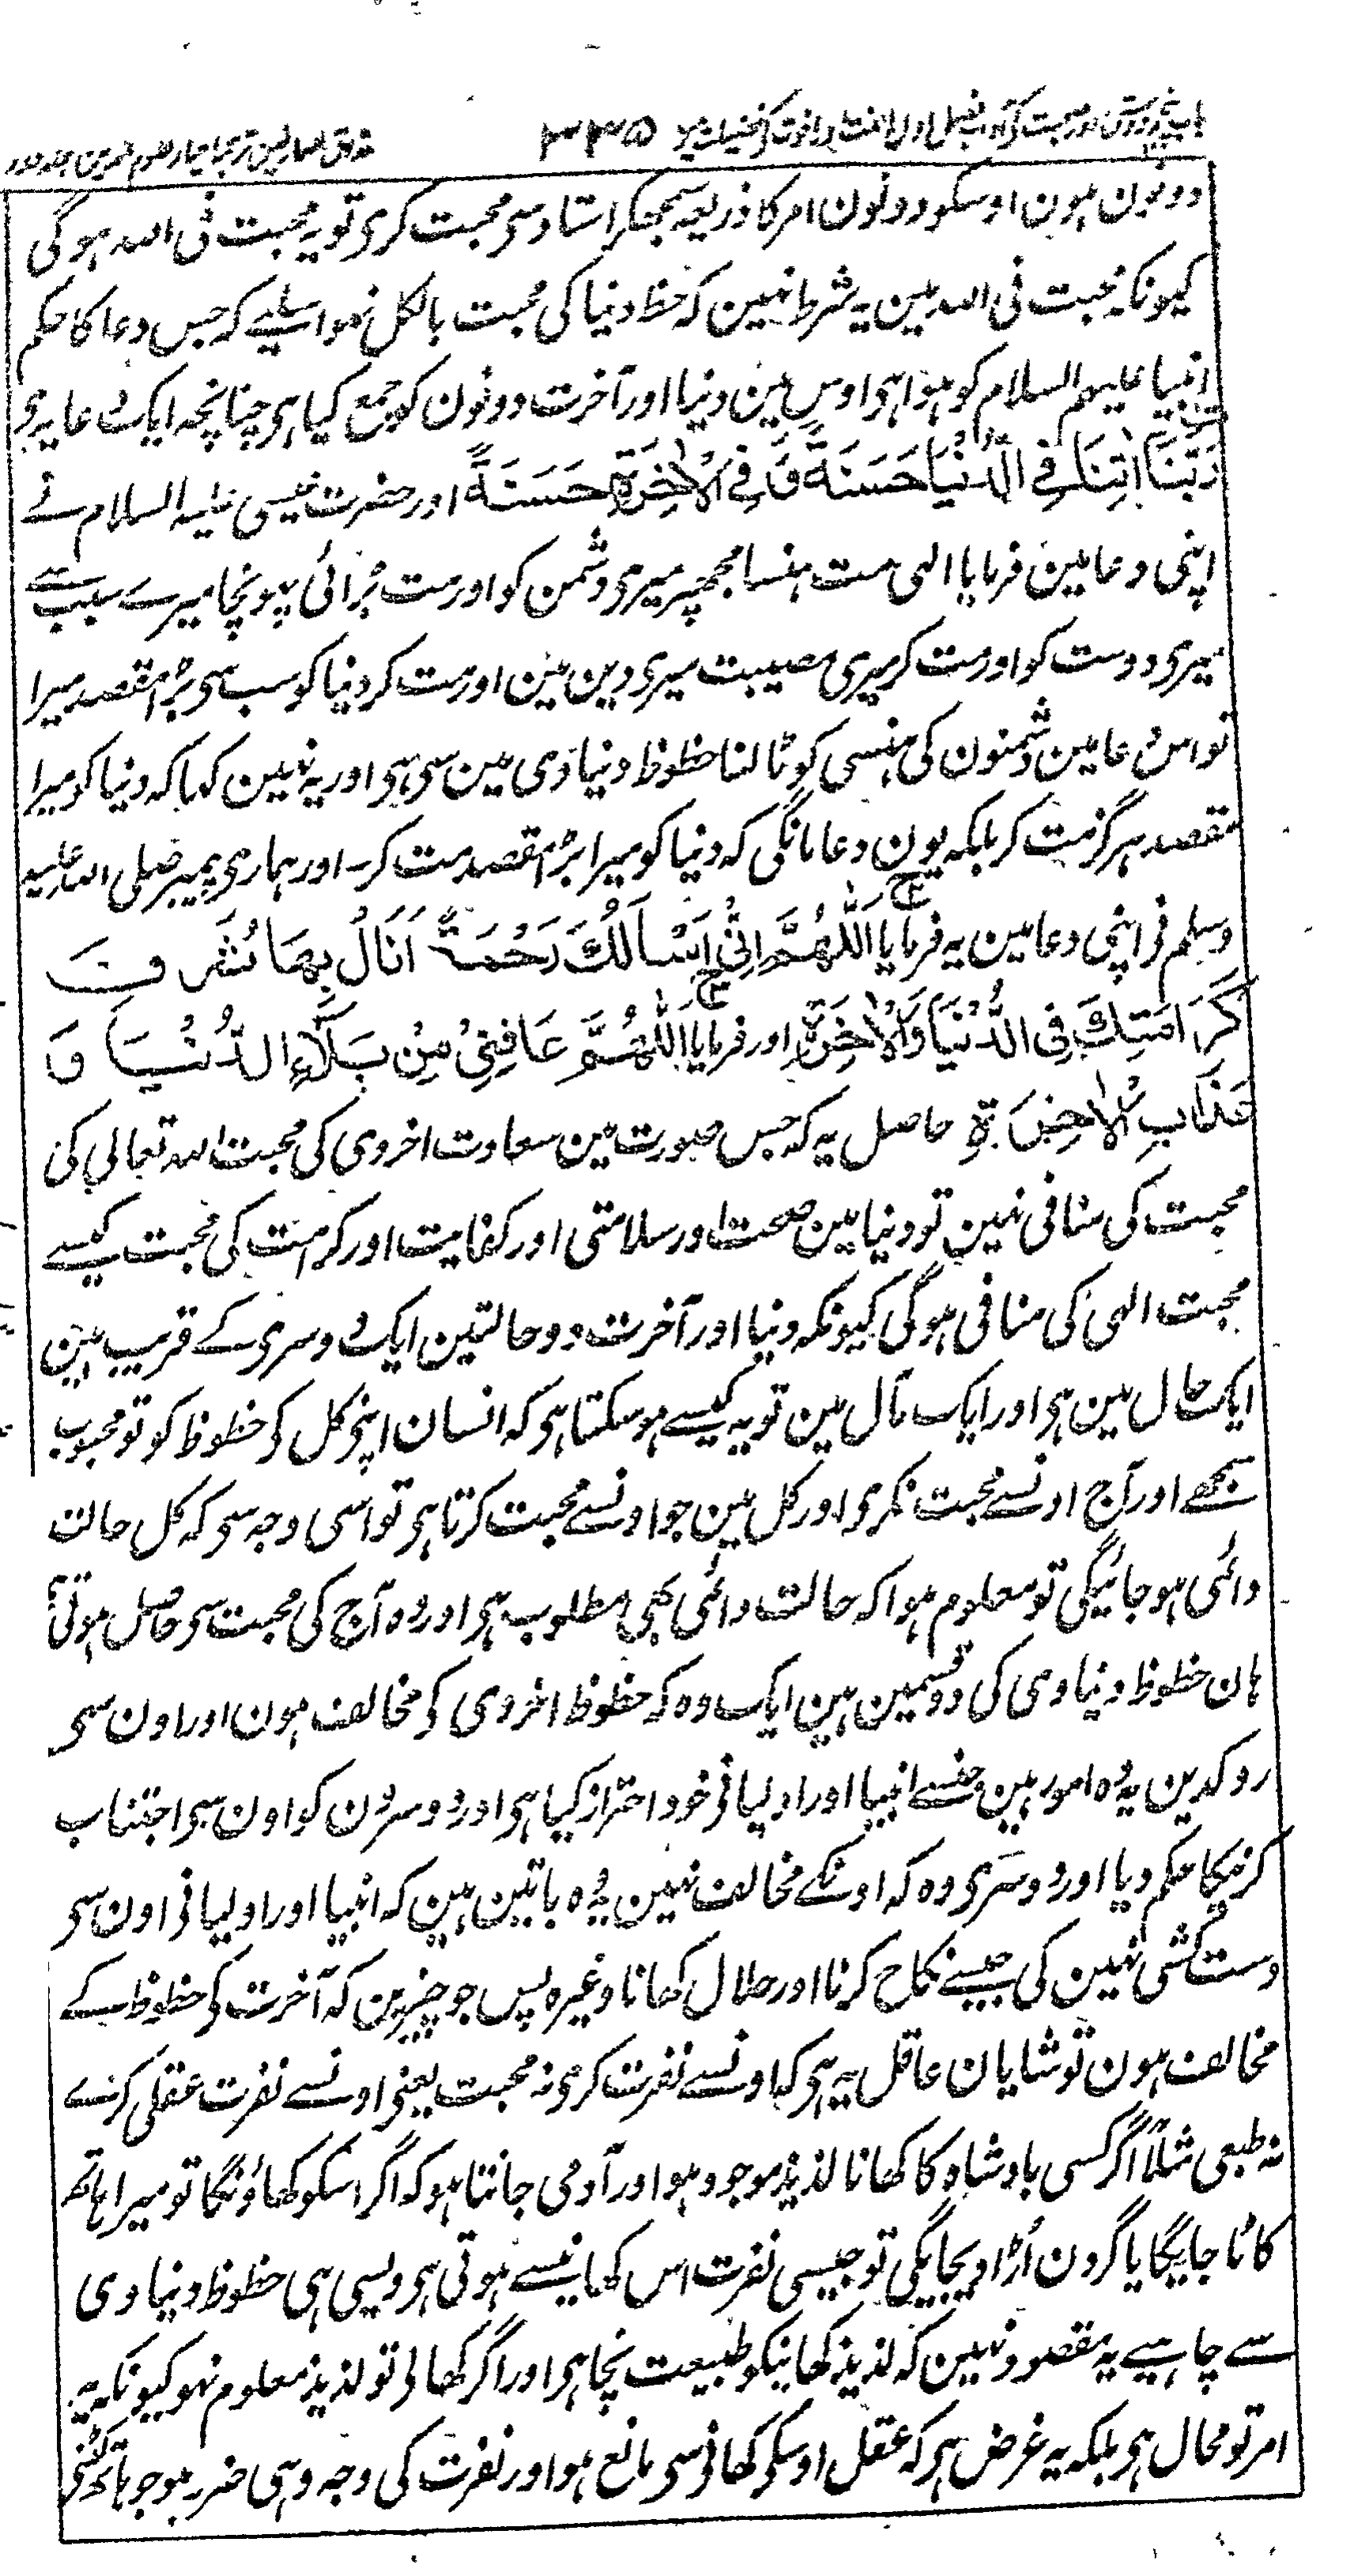 ۳۳۵
دونون ہون اوسکو دونون امر کا ذریعہ سمجھکر استاد سی محبت کری تو یہ محبت فی اللہ ہوگی
کیونکہ محبت فی اللہ مین یہ شرط نہین کہ حظ دنیا کی محبت بالکل نہو اسلیے کہ جس دعا کا حکم
انبیا علیہم السلام کو ہوا ہی اوس مین دنیا اور آخرت دونون کو جمع کیا ہی چنانچہ ایک دعا یہ ہی
رَبَّنَا اٰتِنَا فِي الدُّنْيَا حَسَنَةً وَّ فِي الْاٰخِرَةِ حَسَنَةً اور حضرت عیسی علیہ السلام نے
اپنی دعا مین فرمایا الہی مت ہنسا مجھپر میری دشمن کو اور مت برائی پہونچا میرے سبب سے
میری دوست کو اور مت کر میری مصیبت میری دین مین اور مت کر دنیا کو سب سی بڑا مقصد میرا
تو اس دعا مین دشمنون کی ہنسی کو ٹالنا حظوظ دنیاوی مین سی ہی اور یہ نہین کہا کہ دنیا کو میرا
مقصد ہرگز مت کر بلکہ یون دعا مانگی کہ دنیا کو میرا بڑا مقصد مت کر۔ اور ہماری پیمبر صلی اللہ علیہ
وسلم نی اپنی دعا مین یہ فرمایا اَللّٰهُمَّ اِنِّيْ اَسْاَلُكَ رَحْمَةً اَنَالُ بِهَا شَرَفَ
كَرَامَتِكَ فِي الدُّنْيَا وَالْاٰخِرَةِ اور فرمایا اَللّٰهُمَّ عَافِنِيْ مِنْ بَلَاءِ الدُّنْيَا وَ
عَذَابِ الْاٰخِرَةِ حاصل یہ کہ جس صورت مین سعادت اخروی کی محبت اللہ تعالی کی
محبت کی منافی نہین تو دنیا مین صحت اور سلامتی اور کفایت اور کرامت کی محبت کیسے
محبت الہی کی منافی ہوگی کیونکہ دنیا اور آخرت دو حالتین ایک دوسری کے قریب ہین
ایک حال مین ہی اور ایک مآل مین تو یہ کیسے ہو سکتا ہی کہ انسان اپنی کل کی حظوظ کو تو محبوب
سمجھے اور آج اونسے محبت نکری اور کل مین جو اونسے محبت کرتا ہی تو اسی وجہ سی کہ کل حالت
دائمی ہو جائیگی تو معلوم ہوا کہ حالت دائمی بھی مطلوب ہی اور وہ آج کی محبت سی حاصل ہوتی ہی
ہان حظوظ دنیاوی کی دو قسمین ہین ایک وہ کہ حظوظ اخروی کی مخالف ہون اور اون سی
روکدین یہ وہ امور ہین جنسے انبیا اور اولیا نی خود احتراز کیا ہی اور دوسرون کو اون سی اجتناب
کرنیکا حکم دیا اور دوسری وہ کہ اونکے مخالف نہین یہ وہ باتین ہین کہ انبیا اور اولیا نی اون سی
دست کشی نہین کی جیسے نکاح کرنا اور حلال کھانا وغیرہ پس جو چیزین کہ آخرت کی حظوظ کے
مخالف ہون تو شایان عاقل یہ ہی کہ اونسے نفرت کری نہ محبت یعنی اونسے نفرت عقلی کرے
نہ طبعی مثلاً اگر کسی بادشاہ کا کھانا لذیذ موجود ہو اور آدمی جانتا ہو کہ اگر اسکو کھاؤنگا تو میرا ہاتھ
کاٹا جایگا یا گردن اُڑا دیجایگی تو جیسی نفرت اس کھانیسے ہوتی ہی ویسی ہی حظوظ دنیاوی
سے چاہیے یہ مقصود نہین کہ لذیذ کھانیکو طبیعت نچاہی اور اگر کھالی تو لذیذ معلوم نہو کیونکہ یہ
امر تو محال ہی بلکہ یہ غرض ہی کہ عقل اوسکی کھانی سی مانع ہو اور نفرت کی وجہ وہی ضرر ہو جو ہاتھ کٹنی